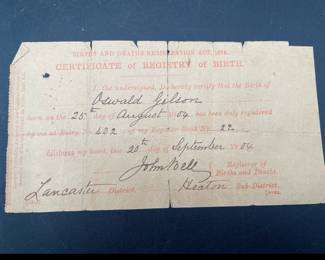 BIRTHS AND DEATHS REGISTRATION ACT, 1874.
CERTIFICATE OF REGISTRY OF BIRTH.
I, the undersigned, Do hereby certify that the Birth of
Oswald Gilson
born on the 25th day of August 1904, has been duly registered
by me at Entry No. 402 of my Register Book No. 22
Witness my hand, this 20th day of September 1904
John Bell Registrar of
Births and Deaths.
Lancaster District. Heaton Sub-District.